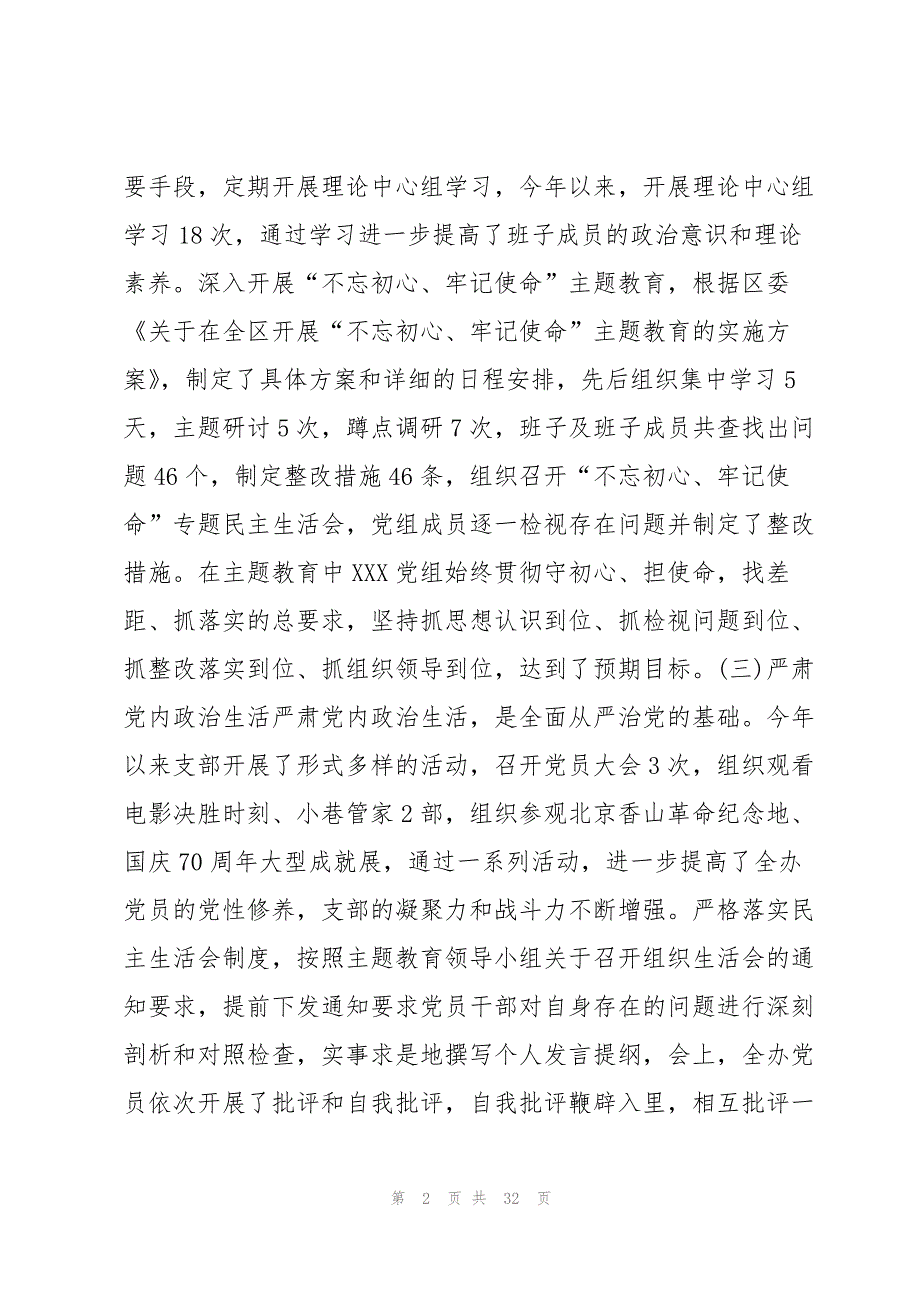 要手段，定期开展理论中心组学习，今年以来，开展理论中心组
学习 18 次，通过学习进一步提高了班子成员的政治意识和理论
素养。深入开展“不忘初心、牢记使命”主题教育，根据区委
《关于在全区开展“不忘初心、牢记使命”主题教育的实施方
案》，制定了具体方案和详细的日程安排，先后组织集中学习 5
天，主题研讨 5 次，蹲点调研 7 次，班子及班子成员共查找出问
题 46 个，制定整改措施 46 条，组织召开“不忘初心、牢记使
命”专题民主生活会，党组成员逐一检视存在问题并制定了整改
措施。在主题教育中 XXX 党组始终贯彻守初心、担使命，找差
距、抓落实的总要求，坚持抓思想认识到位、抓检视问题到位、
抓整改落实到位、抓组织领导到位，达到了预期目标。(三)严肃
党内政治生活严肃党内政治生活，是全面从严治党的基础。今年
以来支部开展了形式多样的活动，召开党员大会 3 次，组织观看
电影决胜时刻、小巷管家 2 部，组织参观北京香山革命纪念地、
国庆 70 周年大型成就展，通过一系列活动，进一步提高了全办
党员的党性修养，支部的凝聚力和战斗力不断增强。严格落实民
主生活会制度，按照主题教育领导小组关于召开组织生活会的通
知要求，提前下发通知要求党员干部对自身存在的问题进行深刻
剖析和对照检查，实事求是地撰写个人发言提纲，会上，全办党
员依次开展了批评和自我批评，自我批评鞭辟入里，相互批评一
第 2 页 共 32 页